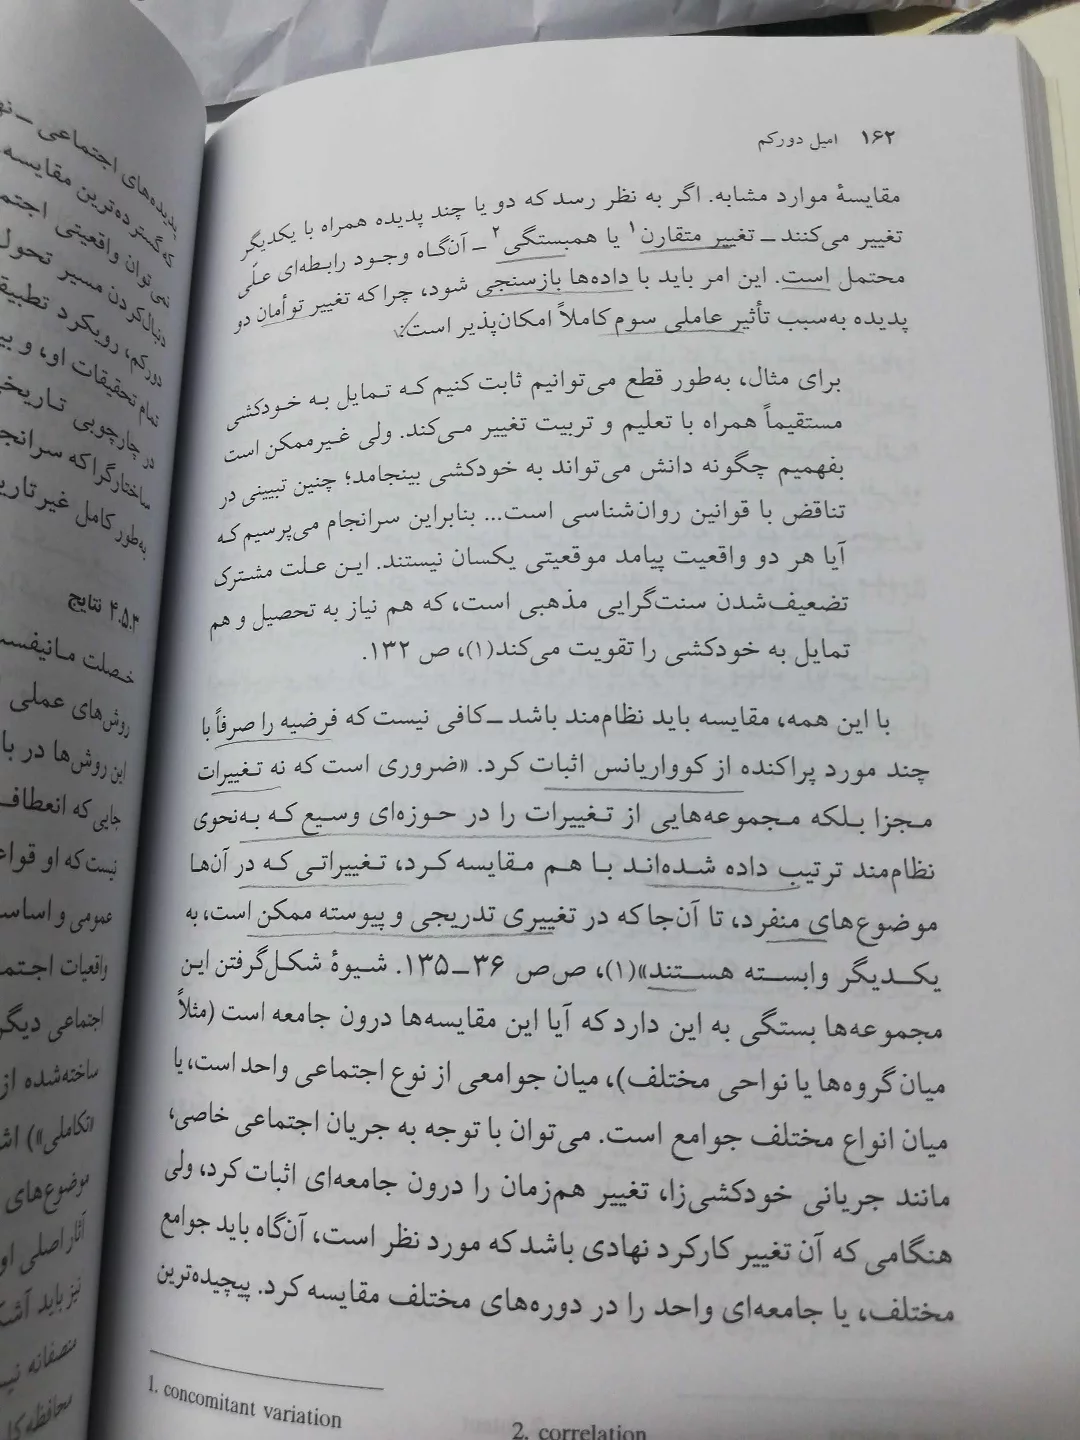 ۱۶۲ امیل دورکم
مقایسهٔ موارد مشابه. اگر به نظر رسد که دو یا چند پدیده همراه با یکدیگر
تغییر می‌کنند ـ تغییر متقارن۱ یا همبستگی۲ ـ آن‌گاه وجود رابطه‌ای علّی
محتمل است. این امر باید با داده‌ها بازسنجی شود، چرا که تغییر توأمان دو
پدیده به‌سبب تأثیر عاملی سوم کاملاً امکان‌پذیر است:
برای مثال، به‌طور قطع می‌توانیم ثابت کنیم که تمایل به خودکشی
مستقیماً همراه با تعلیم و تربیت تغییر می‌کند. ولی غیرممکن است
بفهمیم چگونه دانش می‌تواند به خودکشی بینجامد؛ چنین تبیینی در
تناقض با قوانین روان‌شناسی است... بنابراین سرانجام می‌پرسیم که
آیا هر دو واقعیت پیامد موقعیتی یکسان نیستند. این علت مشترک
تضعیف‌شدن سنت‌گرایی مذهبی است، که هم نیاز به تحصیل و هم
تمایل به خودکشی را تقویت می‌کند(۱)، ص ۱۳۲.
با این همه، مقایسه باید نظام‌مند باشد ـ کافی نیست که فرضیه را صرفاً با
چند مورد پراکنده از کوواریانس اثبات کرد. «ضروری است که نه تغییرات
مجزا بلکه مجموعه‌هایی از تغییرات را در حوزه‌ای وسیع که به‌نحوی
نظام‌مند ترتیب داده شده‌اند با هم مقایسه کرد، تغییراتی که در آن‌ها
موضوع‌های منفرد، تا آن‌جا که در تغییری تدریجی و پیوسته ممکن است، به
یکدیگر وابسته هستند»(۱)، صص ۳۶ـ۱۳۵. شیوهٔ شکل‌گرفتن این
مجموعه‌ها بستگی به این دارد که آیا این مقایسه‌ها درون جامعه است (مثلاً
میان گروه‌ها یا نواحی مختلف)، میان جوامعی از نوع اجتماعی واحد است، یا
میان انواع مختلف جوامع است. می‌توان با توجه به جریان اجتماعی خاصی،
مانند جریانی خودکشی‌زا، تغییر هم‌زمان را درون جامعه‌ای اثبات کرد، ولی
هنگامی که آن تغییر کارکرد نهادی باشد که مورد نظر است، آن‌گاه باید جوامع
مختلف، یا جامعه‌ای واحد را در دوره‌های مختلف مقایسه کرد. پیچیده‌ترین
1. concomitant variation
2. correlation
پدیده‌های اجتماعی
که گسترده‌ترین مقایسه
نمی‌توان واقعیتی
دنبال‌کردن مسیر تحول
دورکم، رویکرد
تمام تحقیقات او، و
در چارچوبی
ساختارگرا که
به‌طور کامل
۴.۵.۳ نتایج
خصلت
روش‌های عملی
این روش‌ها در
جایی که انعطاف
نیست که او
عمومی و
واقعیات
اجتماعی دیگر
ساخته‌شده از
«تکاملی»)
موضوع‌های
آثار اصلی او
نیز باید
منصفانه